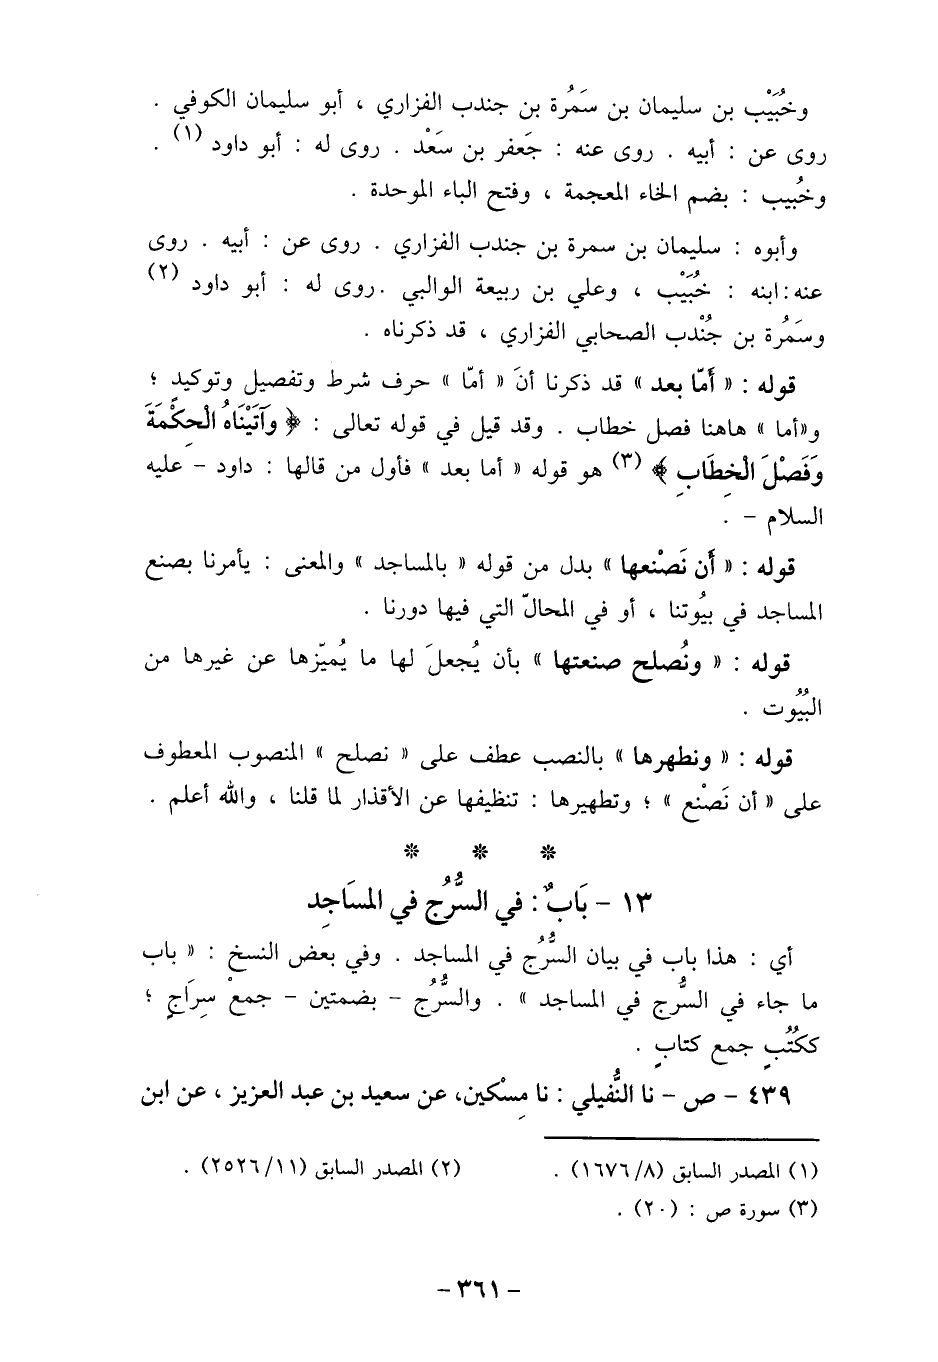 وخُبَيْب بن سليمان بن سَمُرة بن جندب الفزاري ، أبو سليمان الكوفي .
روى عن : أبيه . روى عنه : جَعفر بن سَعْد . روى له : أبو داود (١) .
وخُبيب : بضم الخاء المعجمة ، وفتح الباء الموحدة .
وأبوه : سليمان بن سمرة بن جندب الفزاري . روى عن : أبيه . روى
عنه:ابنه : خُبَيْب ، وعلي بن ربيعة الوالبي .روى له : أبو داود (٢)
وسَمُرة بن جُنْدب الصحابي الفزاري ، قد ذكرناه .
قوله : « أَمّا بعد » قد ذكرنا أنَ « أمّا » حرف شرط وتفصيل وتوكيدٍ ؛
و«أما » هاهنا فصل خطاب . وقد قيل في قوله تعالى : ﴿ وآتَيْنَاهُ الْحِكْمَةَ
وَفَصْلَ الْخِطَابِ ﴾ (٣) هو قوله « أما بعد » فأول من قالها : داود - عليه
السلام - .
قوله : « أَن نَصْنعها » بدل من قوله « بالمساجد » والمعنى : يأمرنا بصنع
المساجد في بيُوتنا ، أو في المحالّ التي فيها دورنا .
قوله : « ونُصلح صنعتها » بأن يُجعلَ لها ما يُميّزها عن غيرها من
البُيُوت .
قوله : « ونطهرها » بالنصب عطف على « نصلح » المنصوب المعطوف
على « أن نَصْنع » ؛ وتطهيرها : تنظيفها عن الأقذار لما قلنا ، والله أعلم .
* * *
١٣ - بَابٌ : في السُّرُج في المسَاجِد
أي : هذا باب في بيان السُّرُج في المساجد . وفي بعض النسخ : « باب
ما جاء في السُّرج في المساجد » . والسُّرُج - بضمتين - جمعْ سِرَاجٍ ؛
ككُتُبٍ جمع كتابٍ .
٤٣٩ - ص - نا النُّفيلي : نا مِسْكين، عن سعيد بن عبد العزيز ، عن ابن
(١) المصدر السابق (٨/ ١٦٧٦) . (٢) المصدر السابق (١١/ ٢٥٢٦) .
(٣) سورة ص : (٢٠) .
- ٣٦١ -